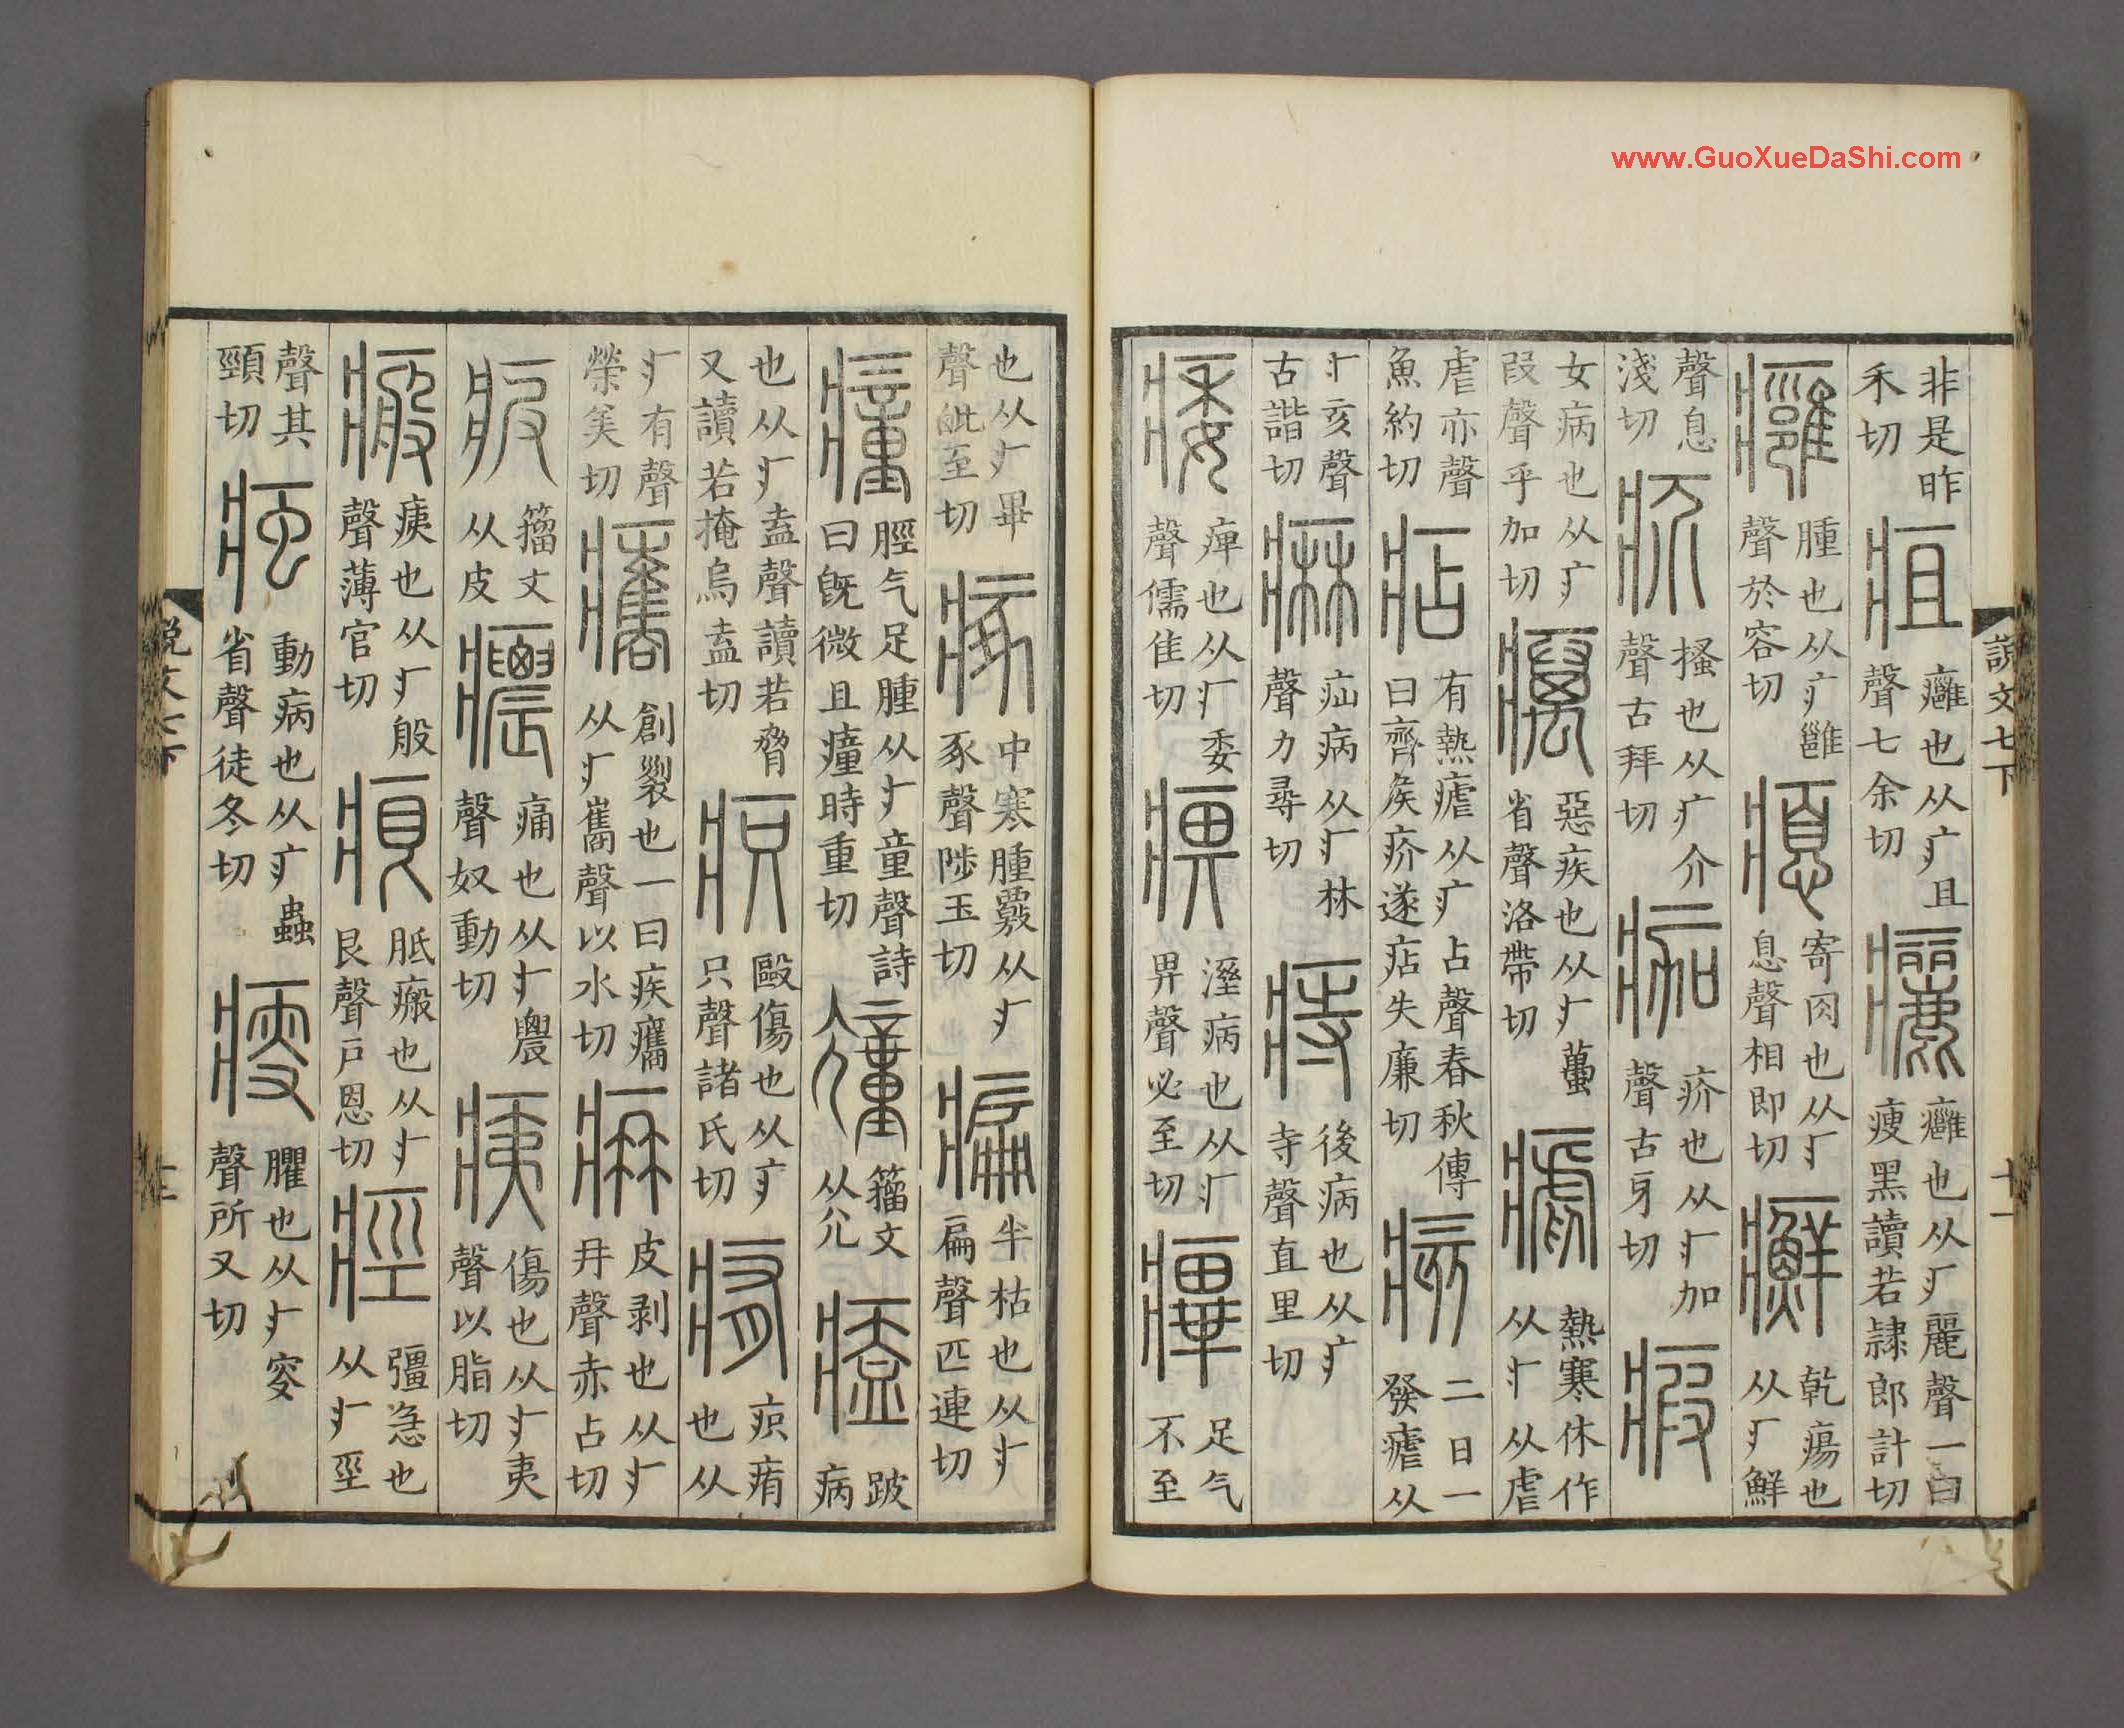 www.GuoXueDaShi.com
說文七下 十一
非是昨禾切 疽 癰也从疒且聲七余切 癰也从疒麗聲一曰瘦黑讀若隸郎計切
癰 腫也从疒雝聲於容切 瘜 寄肉也从疒息聲相即切 癬 乾瘍也从疒鮮
聲息淺切 疥 搔也从疒介聲古拜切 痂 疥也从疒加聲古牙切 瘕
女病也从疒叚聲乎加切 癘 惡疾也从疒蠆省聲洛帶切 瘧 熱寒休作从疒从虐
虐亦聲魚約切 痁 有熱瘧从疒占聲春秋傳曰齊矦疥遂痁失廉切 痎 二日一發瘧从
疒亥聲古諧切 痳 疝病从疒林聲力尋切 痔 後病也从疒寺聲直里切
痿 痺也从疒委聲儒隹切 痹 溼病也从疒畀聲必至切 足气不至
也从疒畢聲毗至切 瘃 中寒腫覈从疒豖聲陟玉切 半枯也从疒扁聲匹連切
瘇 脛气足腫从疒童聲詩曰既微且瘇時重切 籒文从尣 跛病
也从疒盍聲讀若脅又讀若掩烏盍切 疻 毆傷也从疒只聲諸氏切 痏 疻痏也从
疒有聲榮美切 創裂也一曰疾从疒巂聲以水切 皮剥也从疒冄聲赤占切
籒文从皮 癑 痛也从疒農聲奴動切 痍 傷也从疒夷聲以脂切
瘢 痍也从疒般聲薄官切 痕 胝瘢也从疒艮聲戶恩切 痙 彊急也从疒巠
聲其頸切 痋 動病也从疒蟲省聲徒冬切 瘦 臞也从疒叜聲所又切
說文七下